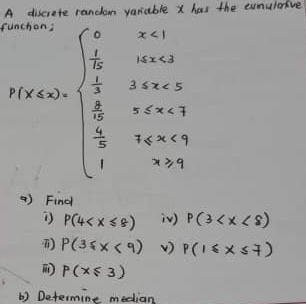 A discrete random variable X has the cumulative
function;
P(X ≤ x) =
0 x < 1
1/15 1 ≤ x < 3
1/3 3 ≤ x < 5
8/15 5 ≤ x < 7
4/5 7 ≤ x < 9
1 x ≥ 9
a) Find
i) P(4 < x ≤ 8) iv) P(3 < x < 8)
ii) P(3 ≤ x < 9) v) P(1 ≤ x ≤ 7)
iii) P(x ≤ 3)
b) Determine median